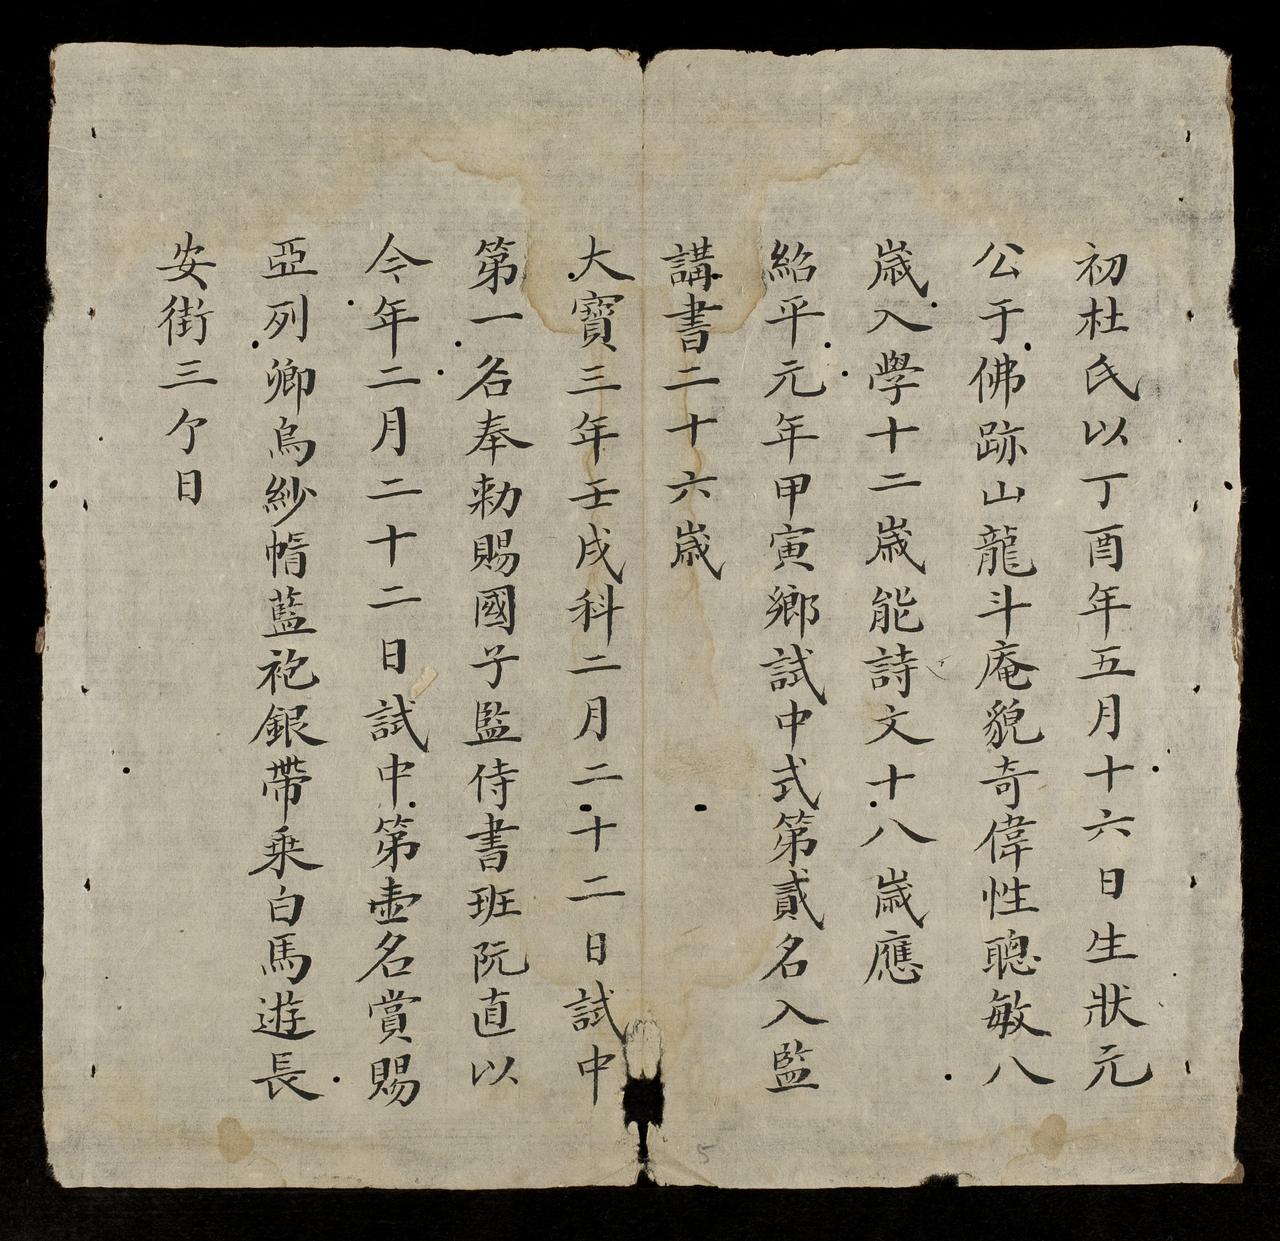 初杜氏以丁酉年五月十六日生狀元
公于佛跡山龍斗庵貌奇偉性聰敏八
歲入學十二歲能詩文十八歲應
紹平元年甲寅鄉試中式第貳名入監
講書二十六歲
大寶三年壬戌科二月二十二日試中
第一名奉勅賜國子監侍書班阮直以
今年二月二十二日試中第壹名賞賜
亞列卿烏紗幘藍袍銀帶乘白馬遊長
安街三个日
5